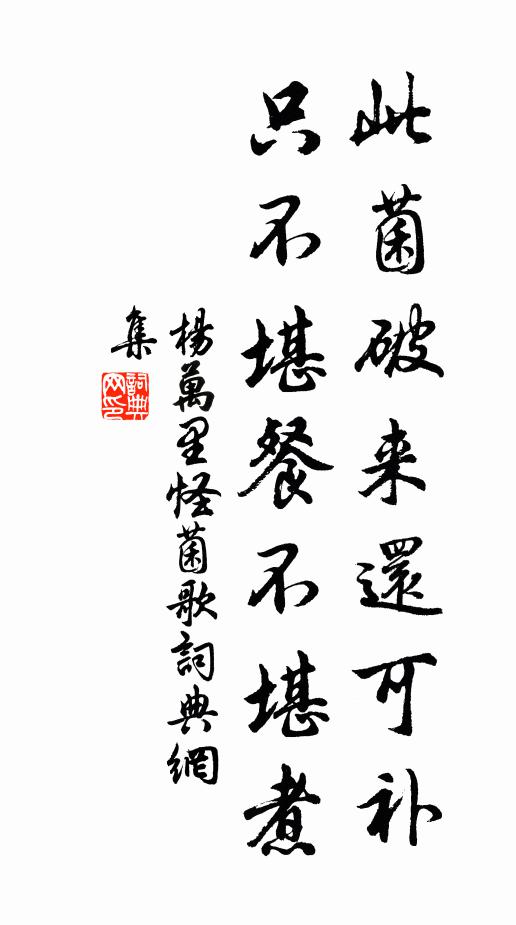 此菌破来還可补
只不堪餐不堪煮
楊萬里怪菌歌詞典網
集
詞典
网印